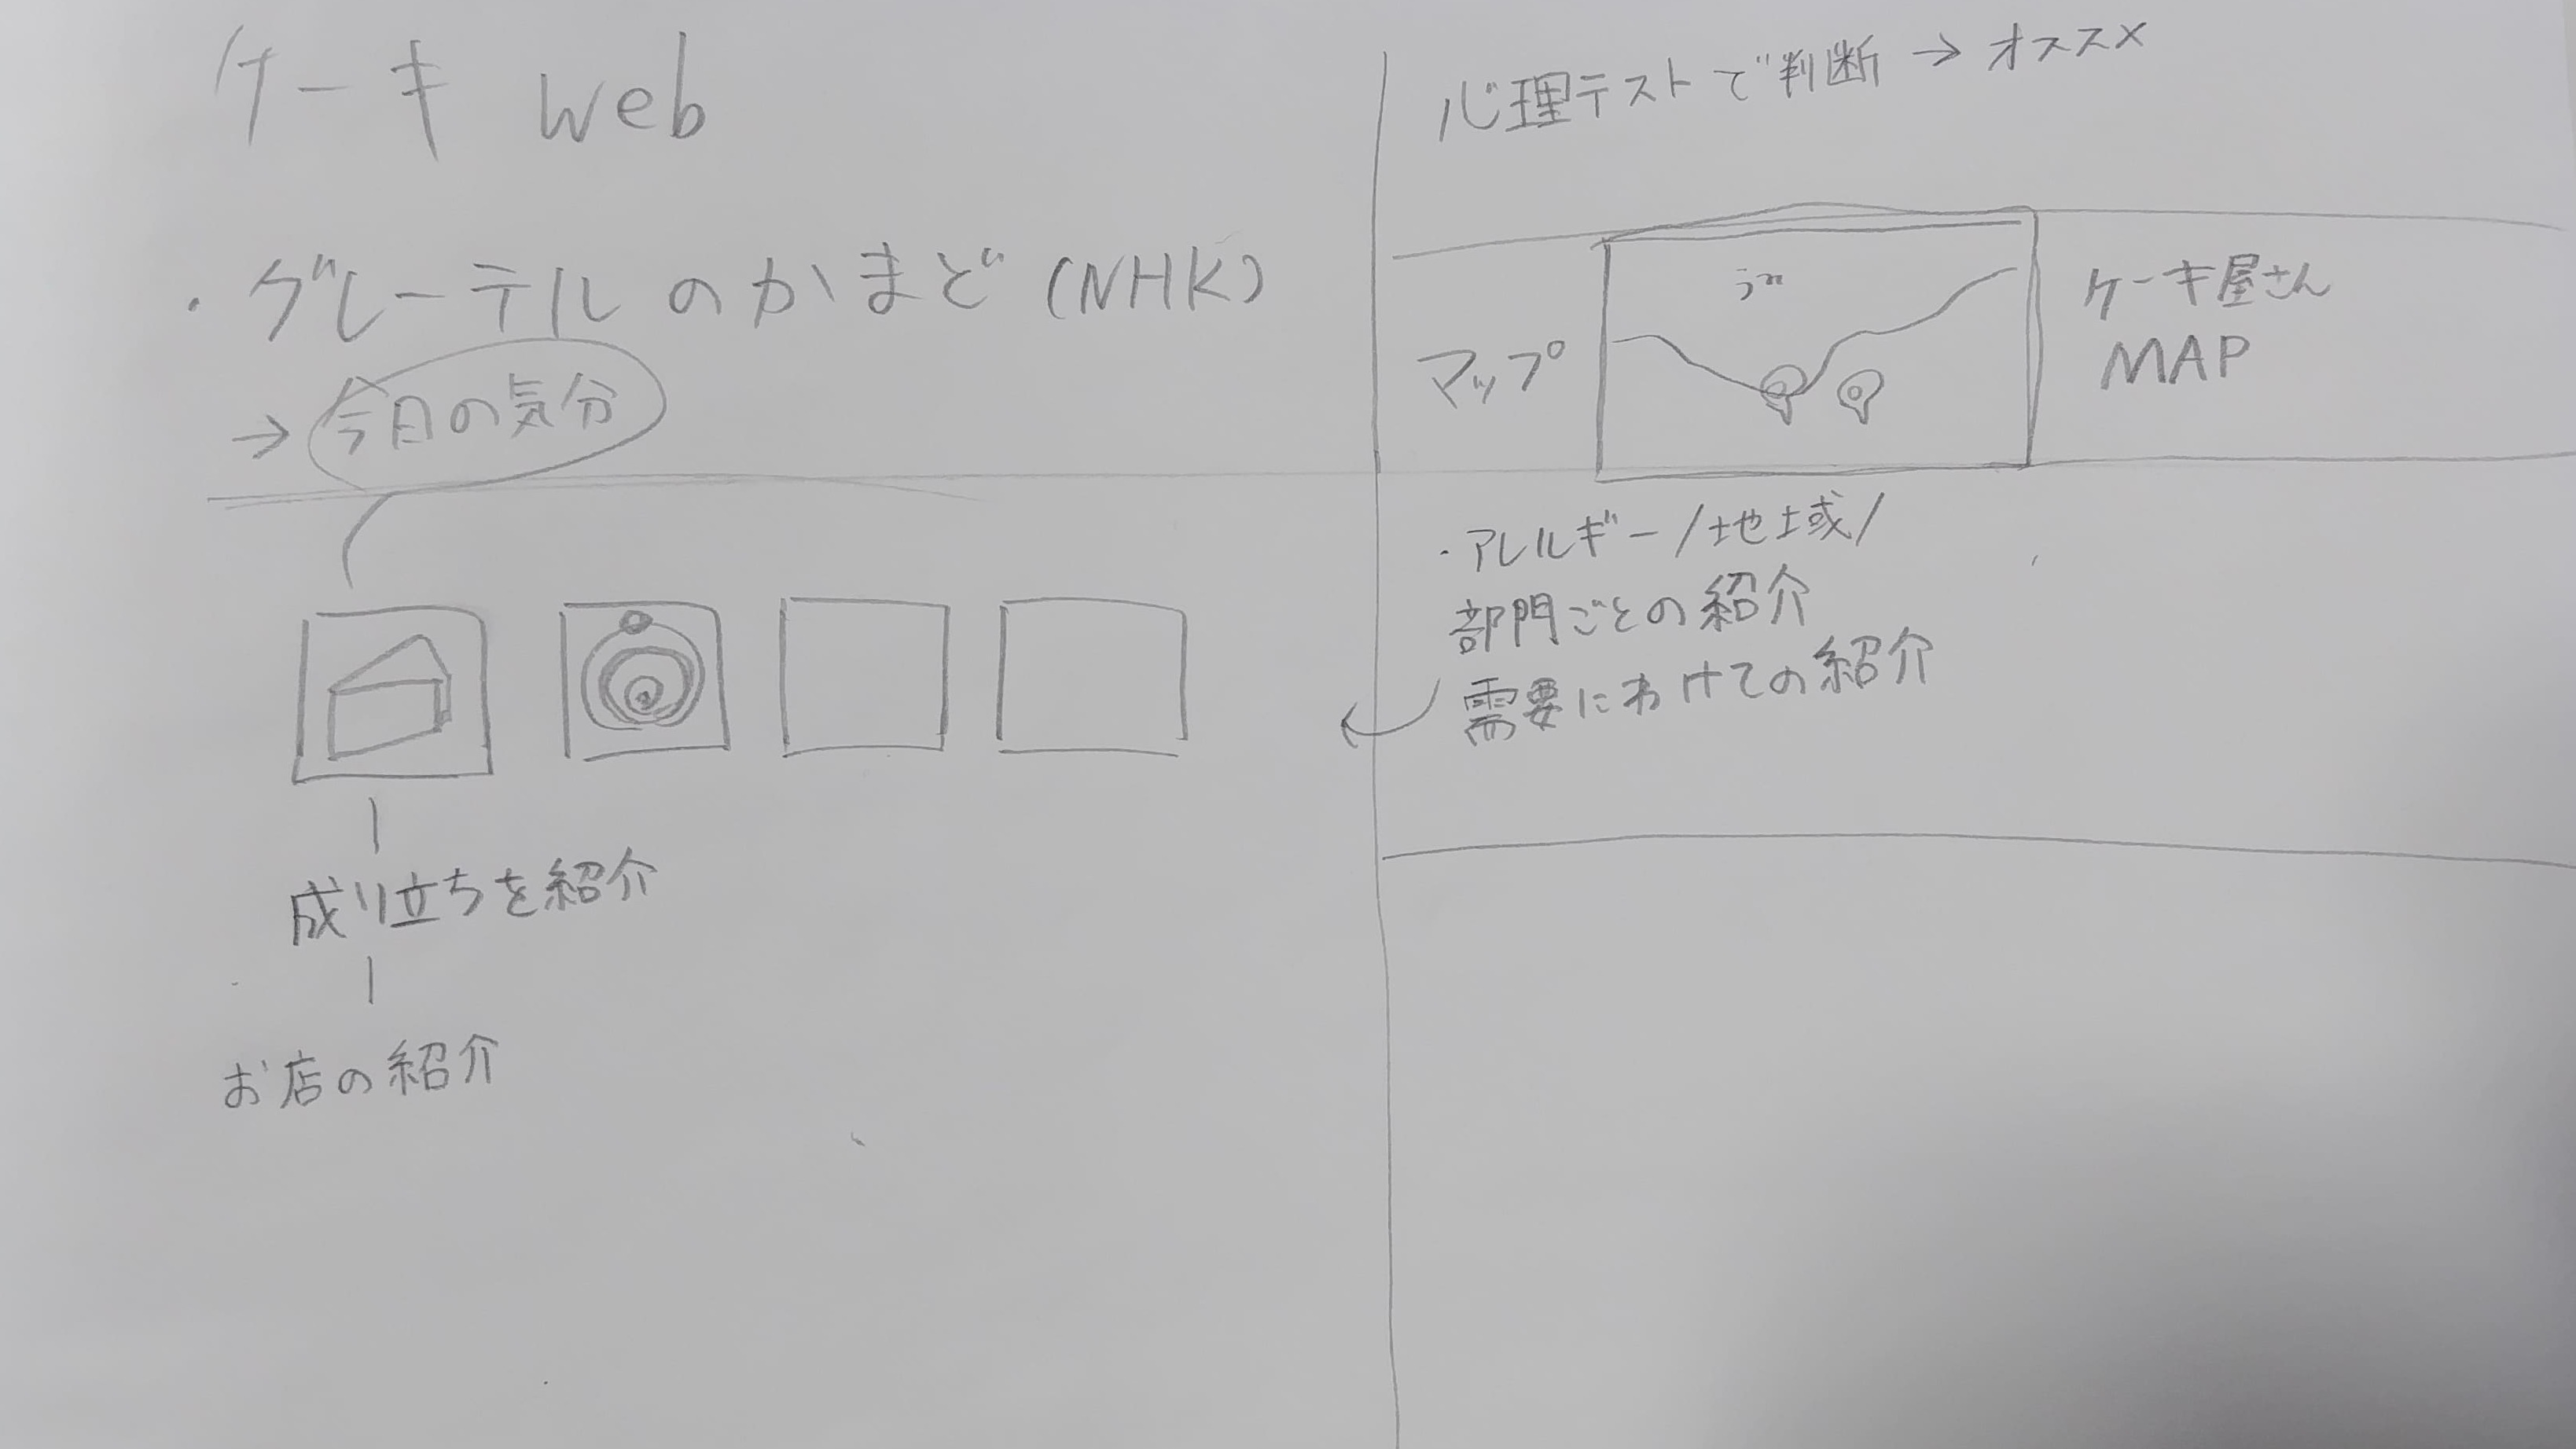 ケーキ web
・グレーテルのかまど(NHK)
→ 今日の気分
成り立ちを紹介
お店の紹介
心理テストで判断 → オススメ
マップ
ケーキ屋さん
MAP
・アレルギー/地域/
部門ごとの紹介
需要にわけての紹介